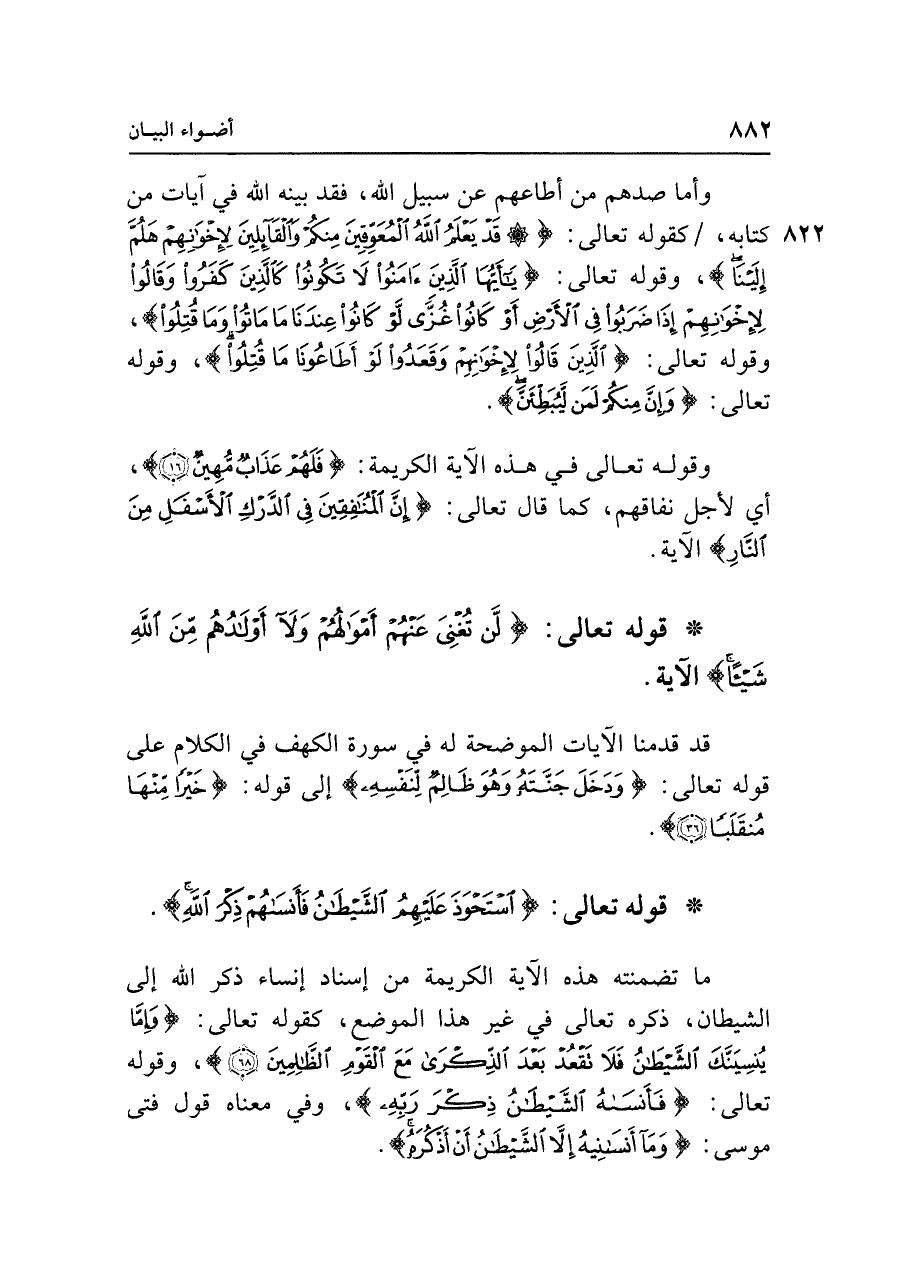 ٨٨٢ أضواء البيان
وأما صدهم من أطاعهم عن سبيل الله، فقد بينه الله في آيات من
٨٢٢ كتابه، / كقوله تعالى: ﴿ ۞ قَدْ يَعْلَمُ ٱللَّهُ ٱلْمُعَوِّقِينَ مِنكُمْ وَٱلْقَآئِلِينَ لِإِخْوَٰنِهِمْ هَلُمَّ
إِلَيْنَا ۖ ﴾، وقوله تعالى: ﴿ يَٰٓأَيُّهَا ٱلَّذِينَ ءَامَنُوا۟ لَا تَكُونُوا۟ كَٱلَّذِينَ كَفَرُوا۟ وَقَالُوا۟
لِإِخْوَٰنِهِمْ إِذَا ضَرَبُوا۟ فِى ٱلْأَرْضِ أَوْ كَانُوا۟ غُزًّى لَّوْ كَانُوا۟ عِندَنَا مَا مَاتُوا۟ وَمَا قُتِلُوا۟﴾،
وقوله تعالى: ﴿ ٱلَّذِينَ قَالُوا۟ لِإِخْوَٰنِهِمْ وَقَعَدُوا۟ لَوْ أَطَاعُونَا مَا قُتِلُوا۟ ۗ ﴾، وقوله
تعالى: ﴿ وَإِنَّ مِنكُمْ لَمَن لَّيُبَطِّئَنَّ ۖ ﴾.
وقوله تعالى في هذه الآية الكريمة: ﴿ فَلَهُمْ عَذَابٌ مُّهِينٌ ١٦﴾،
أي لأجل نفاقهم، كما قال تعالى: ﴿ إِنَّ ٱلْمُنَٰفِقِينَ فِى ٱلدَّرْكِ ٱلْأَسْفَلِ مِنَ
ٱلنَّارِ﴾ الآية.
* قوله تعالى: ﴿ لَّن تُغْنِىَ عَنْهُمْ أَمْوَٰلُهُمْ وَلَآ أَوْلَٰدُهُم مِّنَ ٱللَّهِ
شَيْـًٔا ۚ ﴾ الآية.
قد قدمنا الآيات الموضحة له في سورة الكهف في الكلام على
قوله تعالى: ﴿ وَدَخَلَ جَنَّتَهُۥ وَهُوَ ظَالِمٌ لِّنَفْسِهِۦ﴾ إلى قوله: ﴿ خَيْرًا مِّنْهَا
مُنقَلَبًا ٣٦﴾.
* قوله تعالى: ﴿ ٱسْتَحْوَذَ عَلَيْهِمُ ٱلشَّيْطَٰنُ فَأَنسَىٰهُمْ ذِكْرَ ٱللَّهِ ۚ ﴾.
ما تضمنته هذه الآية الكريمة من إسناد إنساء ذكر الله إلى
الشيطان، ذكره تعالى في غير هذا الموضع، كقوله تعالى: ﴿ وَإِمَّا
يُنسِيَنَّكَ ٱلشَّيْطَٰنُ فَلَا تَقْعُدْ بَعْدَ ٱلذِّكْرَىٰ مَعَ ٱلْقَوْمِ ٱلظَّٰلِمِينَ ٦٨ ﴾، وقوله
تعالى: ﴿ فَأَنسَىٰهُ ٱلشَّيْطَٰنُ ذِكْرَ رَبِّهِۦ ﴾، وفي معناه قول فتى
موسى: ﴿ وَمَآ أَنسَىٰنِيهُ إِلَّا ٱلشَّيْطَٰنُ أَنْ أَذْكُرَهُۥ ۚ ﴾.